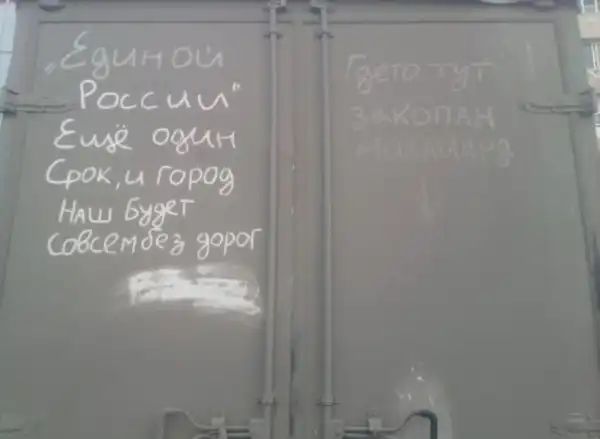 „Единой
России"
Ещё один
Срок, и город
Наш Будет
Совсем без дорог
Где то тут
закопан
миллиард